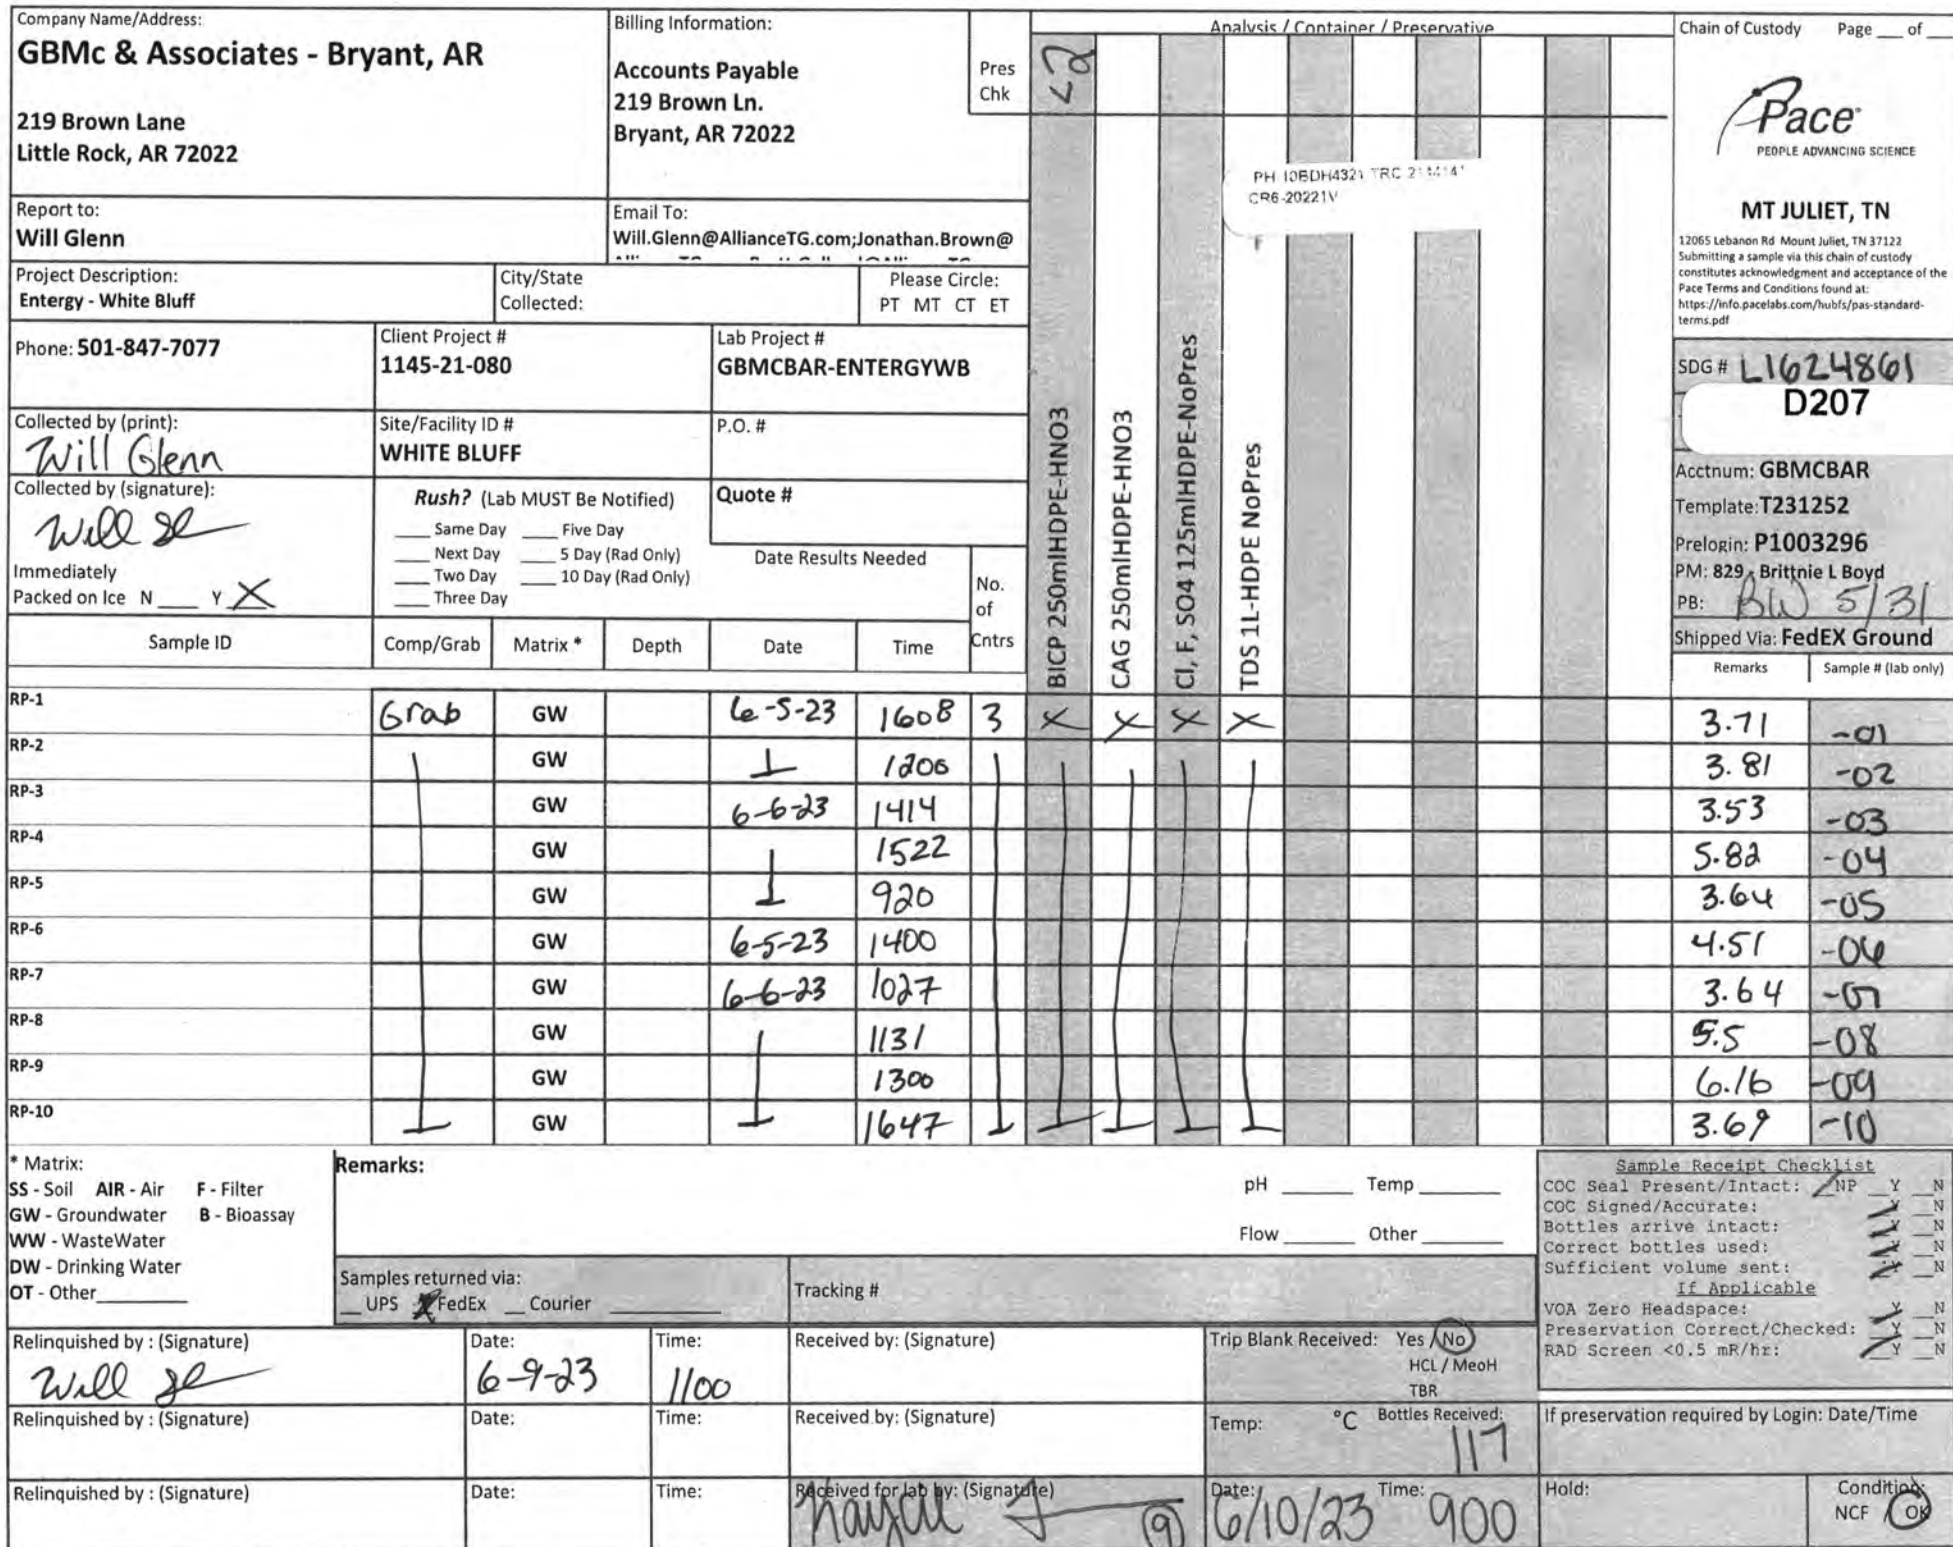 Company Name/Address:
GBMc & Associates - Bryant, AR
219 Brown Lane
Little Rock, AR 72022
Billing Information:
Accounts Payable
219 Brown Ln.
Bryant, AR 72022
Pres
Chk
<2
Analysis / Container / Preservative
Chain of Custody Page ___ of ___
Pace
PEOPLE ADVANCING SCIENCE
MT JULIET, TN
12065 Lebanon Rd Mount Juliet, TN 37122
Submitting a sample via this chain of custody
constitutes acknowledgment and acceptance of the
Pace Terms and Conditions found at:
https://info.pacelabs.com/hubfs/pas-standard-
terms.pdf
Report to:
Will Glenn
Email To:
Will.Glenn@AllianceTG.com;Jonathan.Brown@
PH-10BDH4321 TRC-
CR6-20221V
Project Description:
Entergy - White Bluff
City/State
Collected:
Please Circle:
PT MT CT ET
Phone: 501-847-7077
Client Project #
1145-21-080
Lab Project #
GBMCBAR-ENTERGYWB
SDG # L1624861
D207
Collected by (print):
Will Glenn
Site/Facility ID #
WHITE BLUFF
P.O. #
Acctnum: GBMCBAR
Template: T231252
Prelogin: P1003296
PM: 829 - Brittnie L Boyd
PB: BW 5/31
Shipped Via: FedEX Ground
Collected by (signature):
Will Gl
Immediately
Packed on Ice N ___ Y X
Rush? (Lab MUST Be Notified)
___ Same Day ___ Five Day
___ Next Day ___ 5 Day (Rad Only)
___ Two Day ___ 10 Day (Rad Only)
___ Three Day
Quote #
Date Results Needed
No.
of
Cntrs
BICP 250mlHDPE-HNO3
CAG 250mlHDPE-HNO3
Cl, F, SO4 125mlHDPE-NoPres
TDS 1L-HDPE NoPres
Sample ID Comp/Grab Matrix * Depth Date Time Remarks Sample # (lab only)
RP-1 Grab GW 6-5-23 1608 3 X X X X 3.71 -01
RP-2 GW 1200 3.81 -02
RP-3 GW 6-6-23 1414 3.53 -03
RP-4 GW 1522 5.82 -04
RP-5 GW 920 3.64 -05
RP-6 GW 6-5-23 1400 4.51 -06
RP-7 GW 6-6-23 1027 3.64 -07
RP-8 GW 1131 5.5 -08
RP-9 GW 1300 6.16 -09
RP-10 GW 1647 3.69 -10
* Matrix:
SS - Soil AIR - Air F - Filter
GW - Groundwater B - Bioassay
WW - WasteWater
DW - Drinking Water
OT - Other
Remarks:
pH ___ Temp ___
Flow ___ Other ___
Samples returned via:
__ UPS X FedEx __ Courier
Tracking #
Sample Receipt Checklist
COC Seal Present/Intact: NP Y N
COC Signed/Accurate: Y N
Bottles arrive intact: Y N
Correct bottles used: Y N
Sufficient volume sent: Y N
If Applicable
VOA Zero Headspace: Y N
Preservation Correct/Checked: Y N
RAD Screen <0.5 mR/hr: Y N
Relinquished by : (Signature)
Will Gl
Date:
6-9-23
Time:
1100
Received by: (Signature)
Trip Blank Received: Yes / No
HCL / MeoH
TBR
Relinquished by : (Signature)
Date:
Time:
Received by: (Signature)
Temp: °C Bottles Received:
117
If preservation required by Login: Date/Time
Relinquished by : (Signature)
Date:
Time:
Received for lab by: (Signature)
9
Date: 6/10/23 Time: 900
Hold:
Condition:
NCF / OK